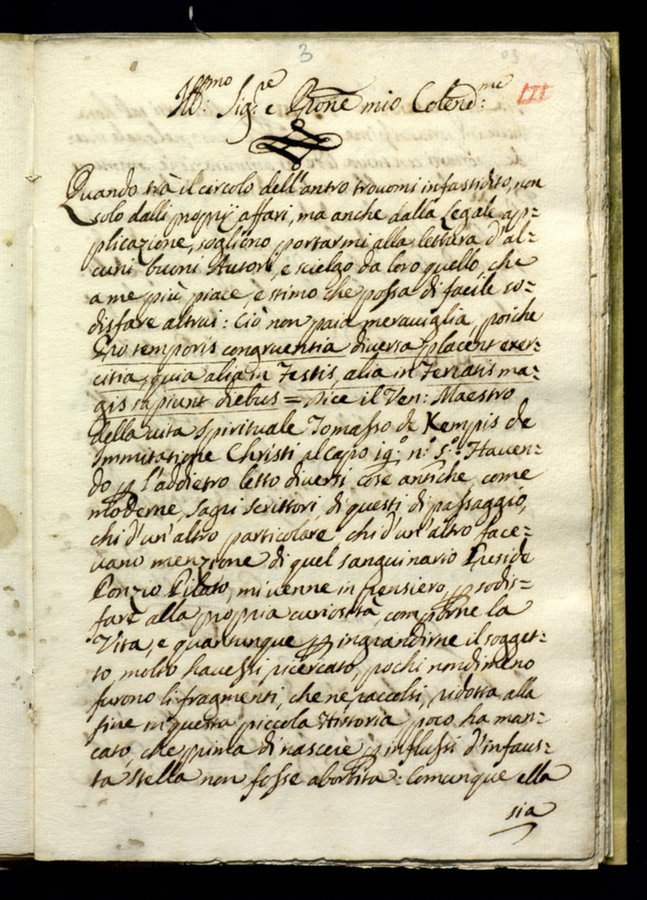 3
Ill:mo Sig:re e Pron̄e mio Colend:mo
171
Quando trà il circolo dell'antro trovomi infastidito, non
solo dalli proprij affari, ma anche dalla Legale ap=
plicazione, sogliono portarmi alla lettura d'al=
cuni buoni Autori, e scielgo da loro quello, che
a me più piace, e stimo che possa di facile so=
disfare altrui: Ciò non paia meraviglia, poiche
Pro temporis congruentia diversa placent exer=
citia, quia alia in Festis, alia in Feriatis ma=
gis sapiunt diebus = Dice il Ven: Maestro
della vita spirituale Tomasso de Kempis de
Immitatione Christi al capo 19.º n.º 5.º Haven=
do p l'addietro letto diversi cose antiche, come
moderne, sagri scrittori di questi di passaggio,
chi d'un'altro particolare chi d'un'altro face=
vano menzione di quel sanguinario Preside
Ponzio Pilato, mi venne in pensiero, p sodis=
fare alla propria curiosità, comporne la
Vita, e quantunque p ingrandirne il sogget=
to, molto havessi ricercato, pochi nondimeno
furono li fragmenti, che ne raccolsi, ridotta alla
fine in questa piccola Historia, poco ha man=
cato, che prima di nascere p influssi d'infaus=
ta stella non fosse abortita: Comunque ella
sia